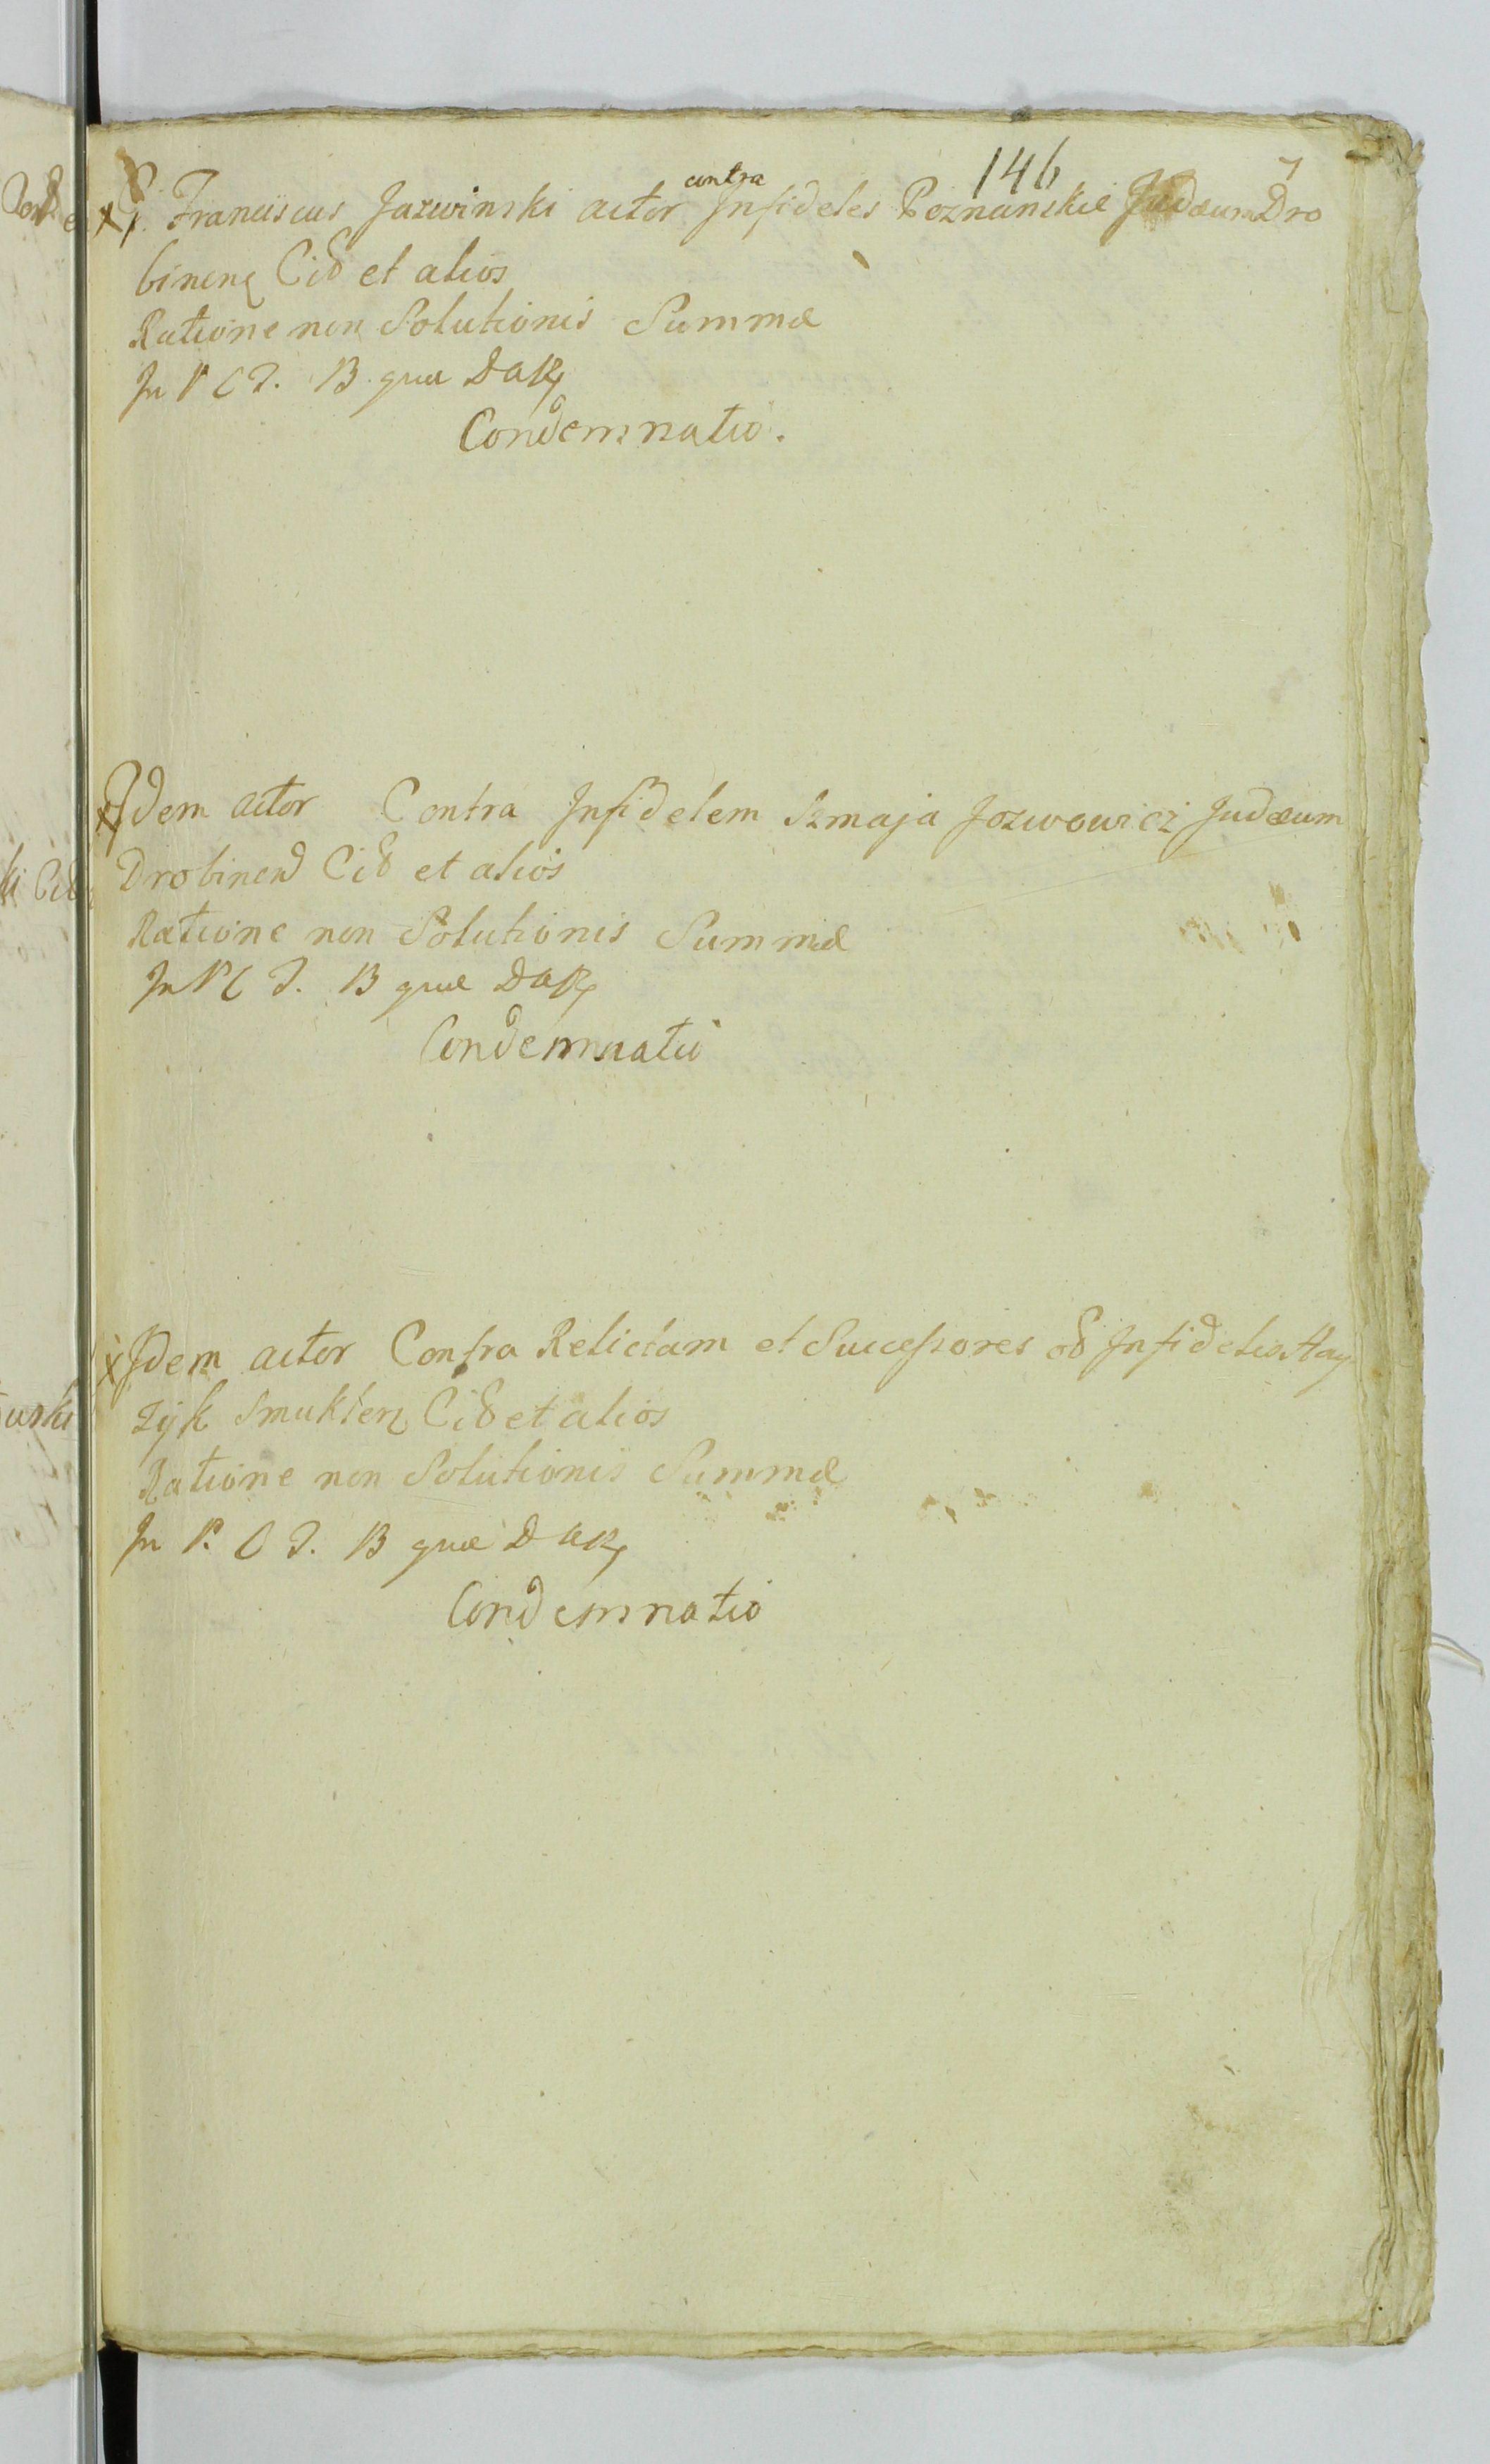 146 7
x G. Franciscus Jazwinski actor contra Infideles Poznanskie Judæum Dro
binen Cit et alios
Ratione non Solutionis Summæ
In P C T. B quæ DAR
Condemnatio.
x Idem actor Contra Infidelem Szmaja Jozwowicz Judæum
Drobinen Cit et alios
Ratione non Solutionis Summæ
In P C T. B quæ DAR
Condemnatio
x Idem actor Contra Relictam et Successores ob Infidelis Hay
zyk Smukler Cit et alios
Ratione non Solutionis Summæ
In P. C T. B quæ DAR
Condemnatio